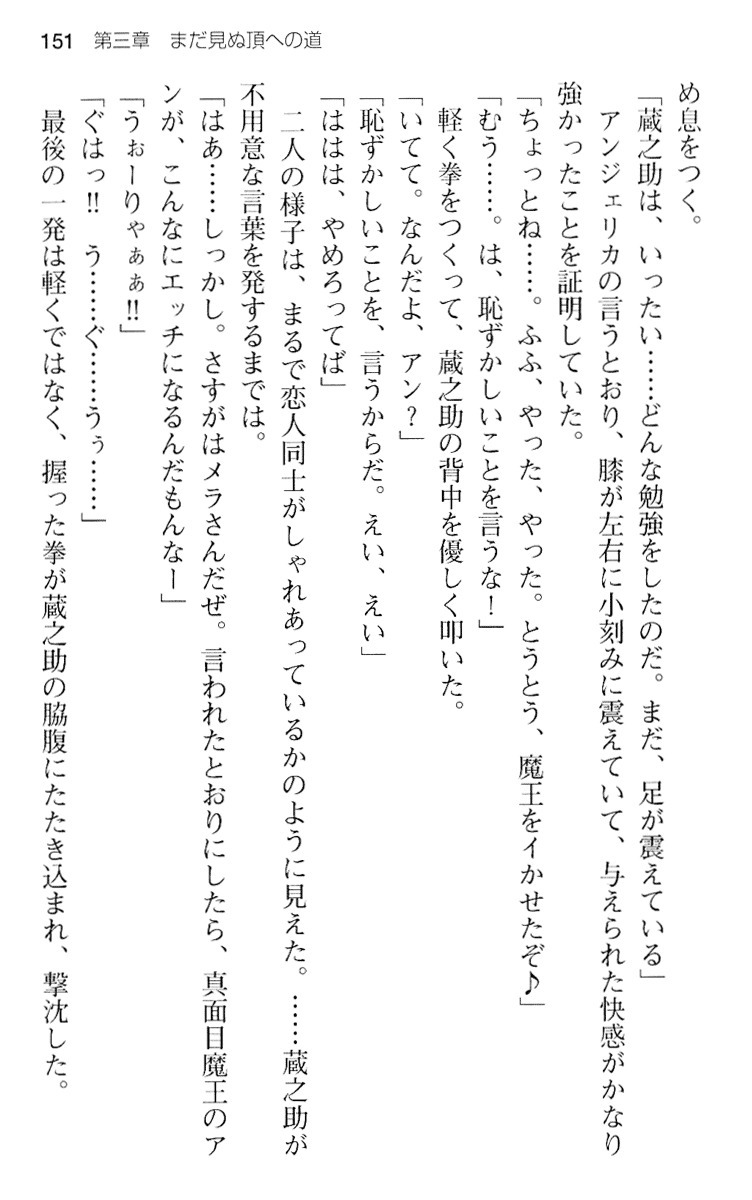 151 第三章 まだ見ぬ頂への道
め息をつく。
「蔵之助は、いったい……どんな勉強をしたのだ。まだ、足が震えている」
アンジェリカの言うとおり、膝が左右に小刻みに震えていて、与えられた快感がかなり
強かったことを証明していた。
「ちょっとね……。ふふ、やった、やった。とうとう、魔王をイかせたぞ♪」
「むう……。は、恥ずかしいことを言うな！」
軽く拳をつくって、蔵之助の背中を優しく叩いた。
「いてて。なんだよ、アン？」
「恥ずかしいことを、言うからだ。えい、えい」
「ははは、やめろってば」
二人の様子は、まるで恋人同士がしゃれあっているかのように見えた。……蔵之助が
不用意な言葉を発するまでは。
「はあ……しっかし。さすがはメラさんだぜ。言われたとおりにしたら、真面目魔王のア
ンが、こんなにエッチになるんだもんなー」
「うぉーりゃぁぁ!!」
「ぐはっ!! う……ぐ……うぅ……」
最後の一発は軽くではなく、握った拳が蔵之助の脇腹にたたき込まれ、撃沈した。